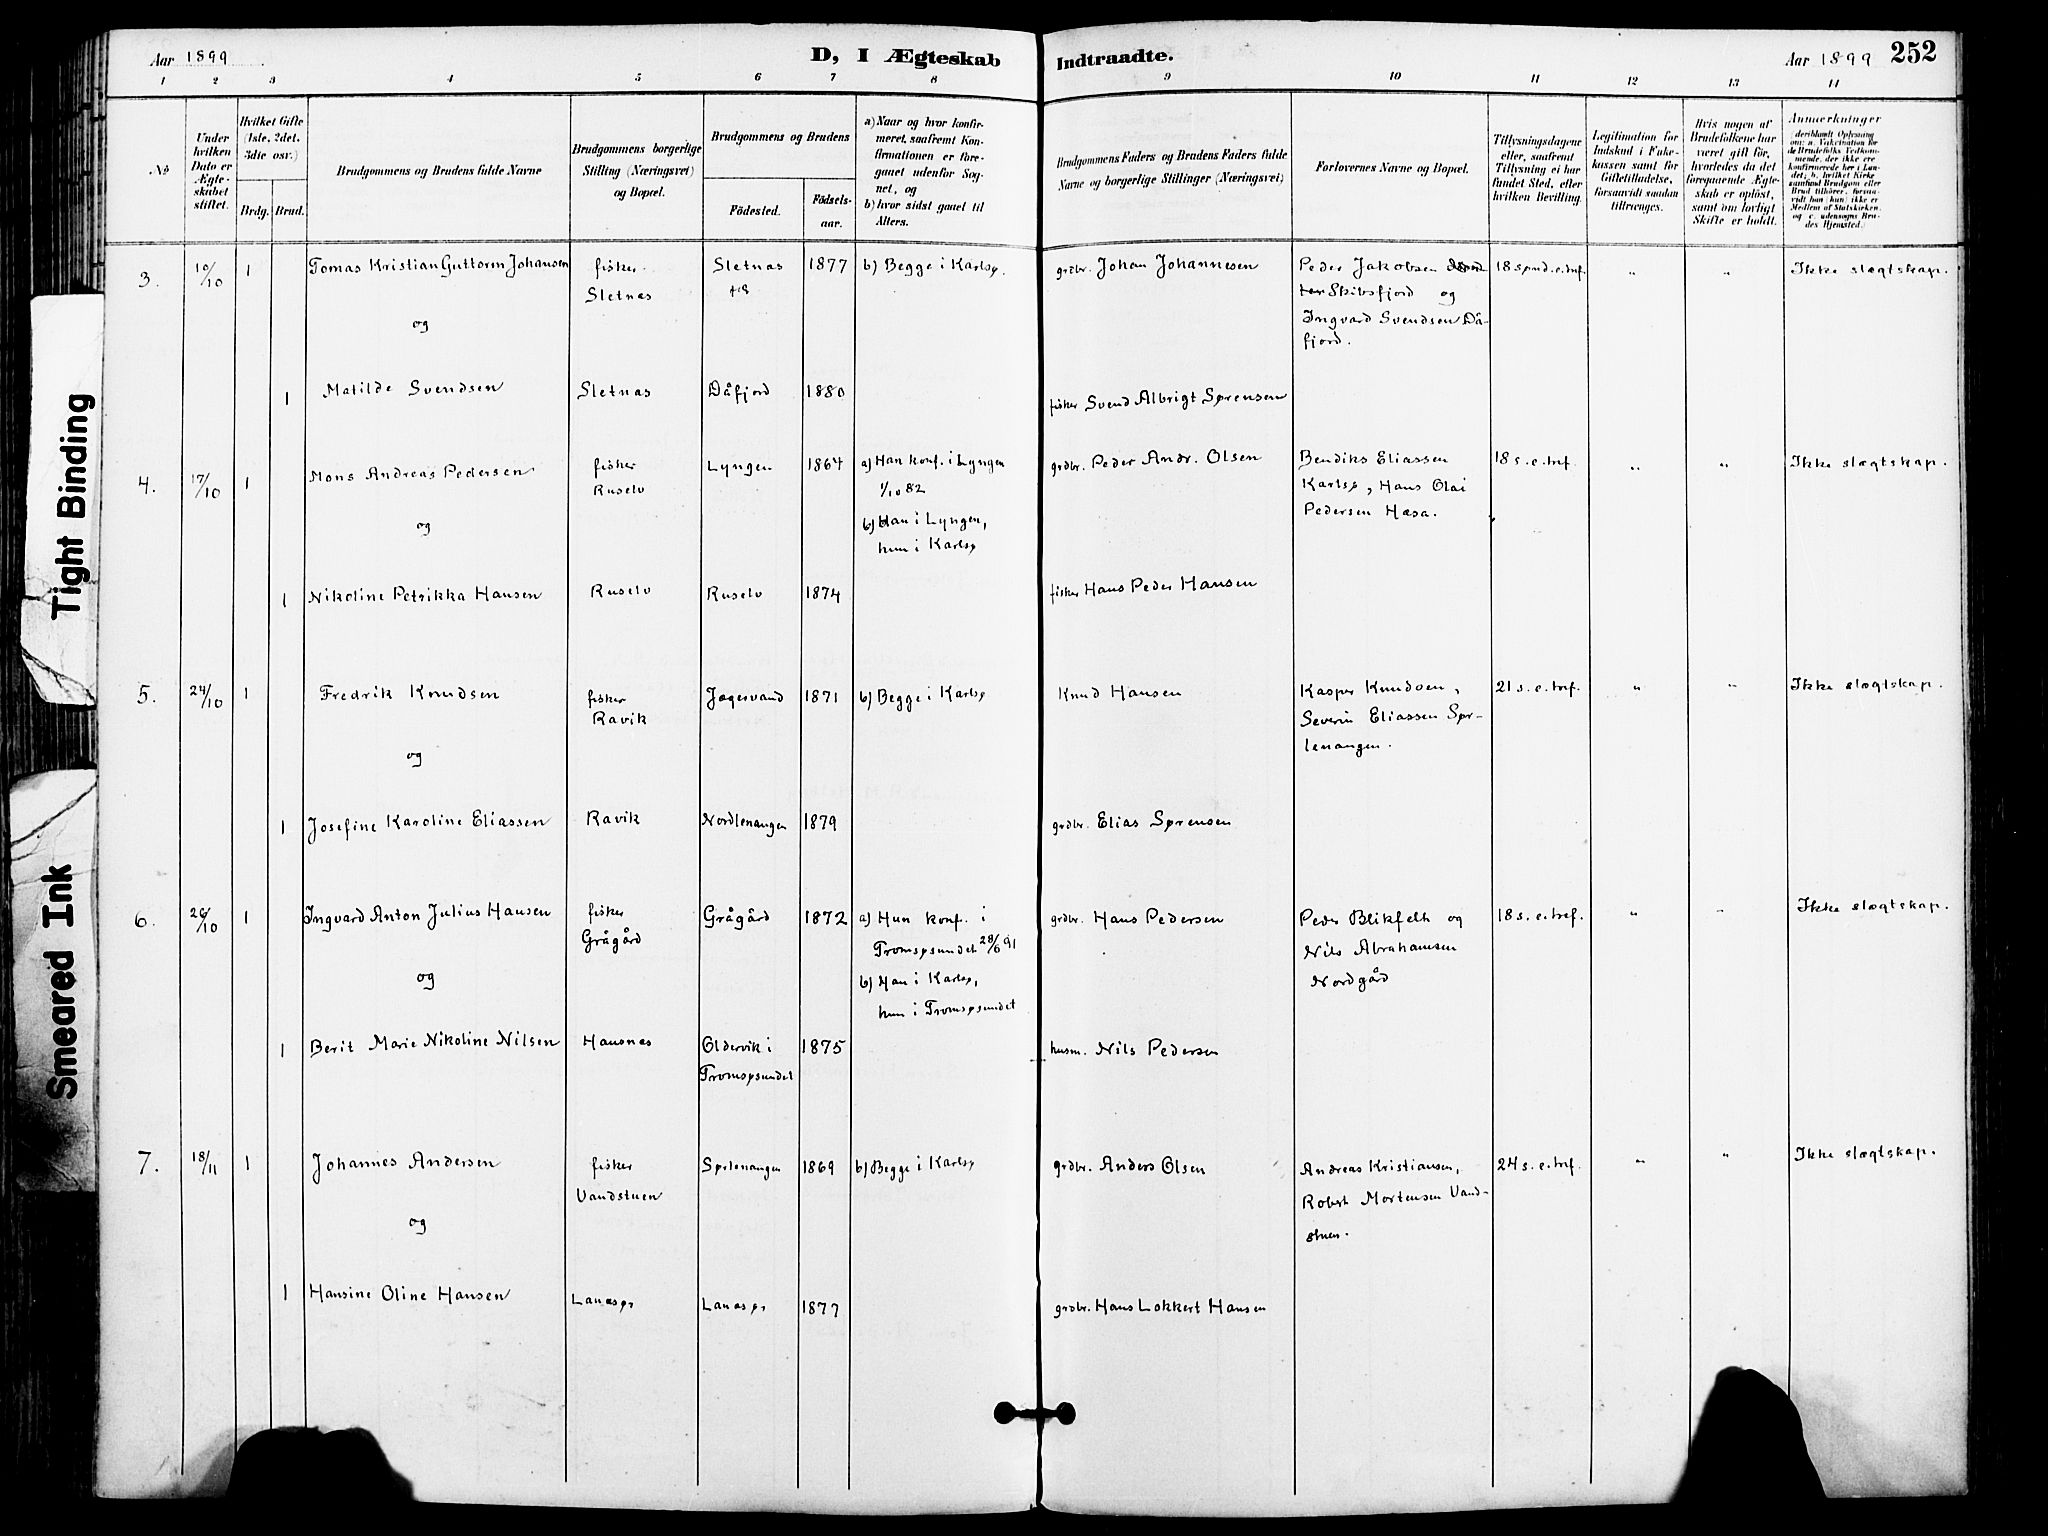 Tight Binding
Smeared Ink
Aar 1899
D, I Ægteskab Indtraadte.
Aar 1899 252
1 2 3 4 5 6 7 8 9 10 11 12 13 14
No
Under hvilken Dato er Ægteskabet stiftet.
Hvilket Gifte (1ste, 2det, 3die osv.)
Brdg. Brud.
Brudgommens og Brudens fulde Navne
Brudgommens borgerlige Stilling (Næringsvei) og Bopæl.
Brudgommens og Brudens
Fødested. Fødsels-aar.
a) Naar og hvor konfirmeret, saafremt Konfirmationen er foregaaet udenfor Sognet, og
b) hvor sidst gaaet til Alters.
Brudgommens Faders og Brudens Faders fulde Navne og borgerlige Stillinger (Næringsvei)
Forlovernes Navne og Bopæl.
Tillysningsdagene eller, saafremt Tillysning ei har fundet Sted, efter hvilken Bevilling.
Legitimation for Indskud i Enkekassen samt for Giftetilladelse, forsaavidt saadan tiltrænges.
Hvis nogen af Brudefolkene har været gift før, hvorledes da det foregaaende Ægteskab er opløst, samt om lovligt Skifte er holdt.
Anmerkninger
3. 10/10 1 Tomas Kristian Guttorm Johansen fisker Sletnæs 1877 b) Begge i Karlsø. grdbr. Johan Johannesen Peder Jakobsen 18 s.e.tref. " " Ikke slægtskap.
Sletnæs Skibsfjord og
og Ingvard Svendsen Då-
fjord.
1 Matilde Svendsen Sletnæs Dåfjord 1880 fisker Svend Albrigt Sørensen
4. 17/10 1 Mons Andreas Pedersen fisker Lyngen 1864 a) Han konf. i Lyngen grdbr. Peder Andr. Olsen Bendiks Eliassen 18 s.e.tref. " " Ikke slægtskap.
Ruselv 1/10 82 Karlsø, Hans Olai
og b) Han i Lyngen, Pedersen Hæsa.
hun i Karlsø
1 Nikoline Petrikka Hansen Ruselv Ruselv 1874 fisker Hans Peder Hansen
5. 24/10 1 Fredrik Knudsen fisker Jægervand 1871 b) Begge i Karlsø Knud Hansen Kasper Knudsen, 21 s.e.tref. " " Ikke slægtskap.
Ravik Severin Eliassen Sør-
og lenangen.
1 Josefine Karoline Eliassen Ravik Nordlenangen 1879 grdbr. Elias Sørensen
6. 26/10 1 Ingvard Anton Julius Hansen fisker Grågård 1872 a) Hun konf. i grdbr. Hans Pedersen Peder Blikfelt og 18 s.e.tref. " " Ikke slægtskap.
Grågård Tromsøsundet 28/6 91 Nils Abrahamsen
og b) Han i Karlsø, Nordgård
hun i Tromsøsundet
1 Berit Marie Nikoline Nilsen Hansnæs Oldervik i 1875 husm. Nils Pedersen
Tromsøsundet
7. 18/11 1 Johannes Andersen fisker Sørlenangen 1869 b) Begge i Karlsø grdbr. Anders Olsen Andreas Kristiansen, 24 s.e.tref. " " Ikke slægtskap.
Vandstuen Robert Mortensen Vand-
og stuen.
1 Hansine Oline Hansen Lanæsør Lanæsør 1877 grdbr. Hans Lokkert Hansen